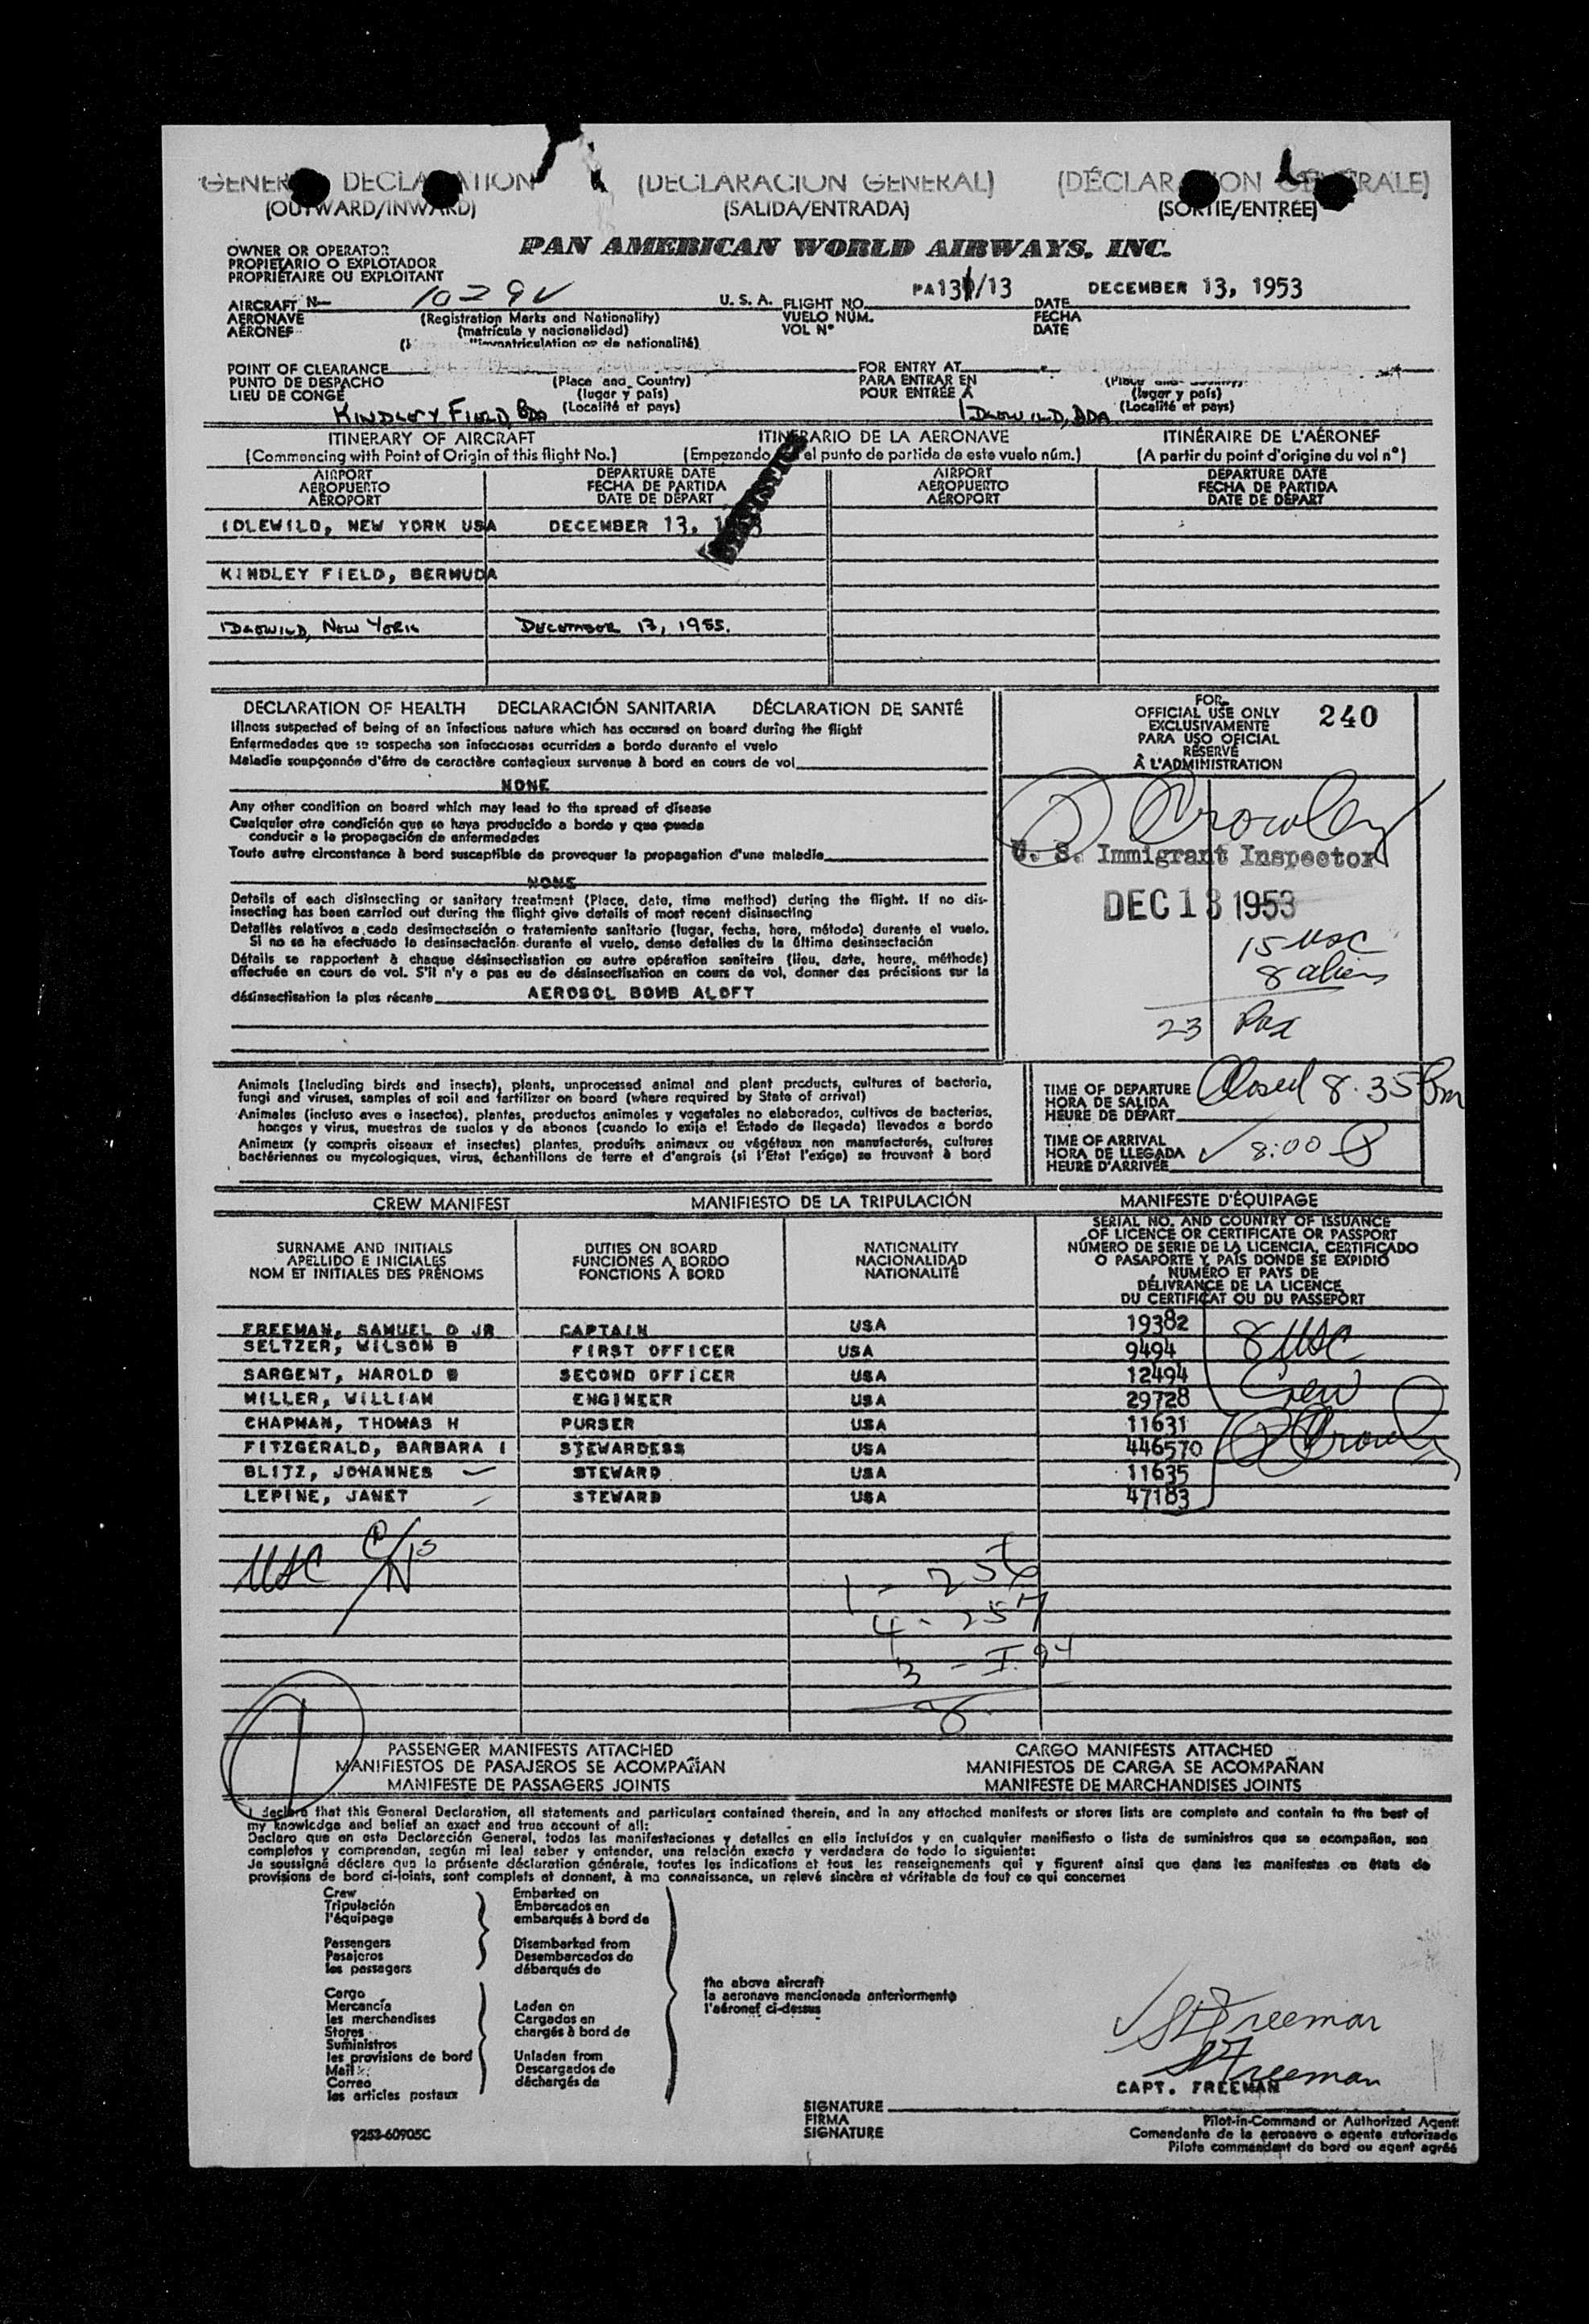 GENERAL DECLARATION (DECLARACION GENERAL) (DÉCLARATION GÉNÉRALE)
(OUTWARD/INWARD) (SALIDA/ENTRADA) (SORTIE/ENTRÉE)
OWNER OR OPERATOR
PROPIETARIO O EXPLOTADOR
PROPRIÉTAIRE OU EXPLOITANT
PAN AMERICAN WORLD AIRWAYS, INC.
AIRCRAFT N- 1029V U. S. A. FLIGHT NO. PA131/13 DATE DECEMBER 13, 1953
AERONAVE (Registration Marks and Nationality) VUELO NÚM. FECHA
AÉRONEF (matrícula y nacionalidad) VOL N° DATE
nationalité)
POINT OF CLEARANCE FOR ENTRY AT
PUNTO DE DESPACHO (Place and Country) PARA ENTRAR EN
LIEU DE CONGÉ (lugar y país) POUR ENTRÉE À (lugar y país)
KINDLEY FIELD, BDA (Localité et pays) IDLEWILD, BDA (Localité et pays)
ITINERARY OF AIRCRAFT ITINERARIO DE LA AERONAVE ITINÉRAIRE DE L'AÉRONEF
(Commencing with Point of Origin of this flight No.) (Empezando el punto de partida de este vuelo núm.) (A partir du point d'origine du vol n°)
AIRPORT DEPARTURE DATE AIRPORT DEPARTURE DATE
AEROPUERTO FECHA DE PARTIDA AEROPUERTO FECHA DE PARTIDA
AÉROPORT DATE DE DÉPART AÉROPORT DATE DE DÉPART
IDLEWILD, NEW YORK USA DECEMBER 13,
KINDLEY FIELD, BERMUDA
IDLEWILD, NEW YORK DECEMBER 13, 1953.
DECLARATION OF HEALTH DECLARACIÓN SANITARIA DÉCLARATION DE SANTÉ
Illness suspected of being of an infectious nature which has occured on board during the flight
Enfermedades que se sospecha son infecciosas ocurridas a bordo durante el vuelo
Maladie soupçonnée d'être de caractère contagieux survenue à bord en cours de vol
NONE
Any other condition on board which may lead to the spread of disease
Cualquier otra condición que se haya producido a bordo y que pueda
conducir a la propagación de enfermedades
Toute autre circonstance à bord susceptible de provoquer la propagation d'une maladie
NONE
Details of each disinsecting or sanitary treatment (Place, date, time method) during the flight. If no dis-
insecting has been carried out during the flight give details of most recent disinsecting
Detalles relativos a cada desinsectación o tratamiento sanitario (lugar, fecha, hora, método) durante el vuelo.
Si no se ha efectuado la desinsectación durante el vuelo, dense detalles de la última desinsectación
Détails se rapportant à chaque désinsectisation ou autre opération sanitaire (lieu, date, heure, méthode)
effectuée en cours de vol. S'il n'y a pas eu de désinsectisation en cours de vol, donner des précisions sur la
désinsectisation la plus récente AEROSOL BOMB ALOFT
FOR
OFFICIAL USE ONLY 240
EXCLUSIVAMENTE
PARA USO OFICIAL
RÉSERVÉ
À L'ADMINISTRATION
Crowley
U. S. Immigrant Inspector
DEC 13 1953
15 USC
8 aliens
23 Pax
Animals (Including birds and insects), plants, unprocessed animal and plant products, cultures of bacteria,
fungi and viruses, samples of soil and fertilizer on board (where required by State of arrival)
Animales (incluso aves e insectos), plantas, productos animales y vegetales no elaborados, cultivos de bacterias,
hongos y virus, muestras de suelos y de abonos (cuando lo exija el Estado de llegada) llevados a bordo
Animaux (y compris oiseaux et insectes) plantes, produits animaux ou végétaux non manufacturés, cultures
bactériennes ou mycologiques, virus, échantillons de terre et d'engrais (si l'Etat l'exige) se trouvant à bord
TIME OF DEPARTURE Closed 8.35 Pm
HORA DE SALIDA
HEURE DE DÉPART
TIME OF ARRIVAL
HORA DE LLEGADA 8:00
HEURE D'ARRIVÉE
CREW MANIFEST MANIFIESTO DE LA TRIPULACIÓN MANIFESTE D'ÉQUIPAGE
SURNAME AND INITIALS DUTIES ON BOARD NATIONALITY
APELLIDO E INICIALES FUNCIONES A BORDO NACIONALIDAD
NOM ET INITIALES DES PRÉNOMS FONCTIONS À BORD NATIONALITÉ
SERIAL NO. AND COUNTRY OF ISSUANCE
OF LICENCE OR CERTIFICATE OR PASSPORT
NÚMERO DE SERIE DE LA LICENCIA, CERTIFICADO
O PASAPORTE Y PAÍS DONDE SE EXPIDIÓ
NUMÉRO ET PAYS DE
DÉLIVRANCE DE LA LICENCE
DU CERTIFICAT OU DU PASSEPORT
FREEMAN, SAMUEL D JR CAPTAIN USA 19382
SELTZER, WILSON B FIRST OFFICER USA 9494 8 USC
SARGENT, HAROLD SECOND OFFICER USA 12494
MILLER, WILLIAM ENGINEER USA 29728 Crew
CHAPMAN, THOMAS H PURSER USA 11631
FITZGERALD, BARBARA I STEWARDESS USA 446570 Crowley
BLITZ, JOHANNES STEWARD USA 11635
LEPINE, JANET STEWARD USA 47183
USC
1 - 256
4 - 257
3 - I.94
8
PASSENGER MANIFESTS ATTACHED CARGO MANIFESTS ATTACHED
MANIFIESTOS DE PASAJEROS SE ACOMPAÑAN MANIFIESTOS DE CARGA SE ACOMPAÑAN
MANIFESTE DE PASSAGERS JOINTS MANIFESTE DE MARCHANDISES JOINTS
I declare that this General Declaration, all statements and particulars contained therein, and in any attached manifests or stores lists are complete and contain to the best of
my knowledge and belief an exact and true account of all:
Declaro que en esta Declaración General, todas las manifestaciones y detalles en ella incluídos y en cualquier manifiesto o lista de suministros que se acompañan, son
completos y comprenden, según mi leal saber y entender, una relación exacta y verdadera de todo lo siguiente:
Je soussigné déclare que la présente déclaration générale, toutes les indications et tous les renseignements qui y figurent ainsi que dans les manifestes ou états de
provisions de bord ci-joints, sont complets et donnent, à ma connaissance, un relevé sincère et véritable de tout ce qui concernes
Crew Embarked on
Tripulación Embarcados en
l'équipage embarqués à bord de
Passengers Disembarked from
Pasajeros Desembarcados de
les passagers débarqués de
the above aircraft
la aeronave mencionada anteriormente
l'aéronef ci-dessus
Cargo
Mercancía Laden on
les merchandises Cargados en
Stores chargés à bord de
Suministros
les provisions de bord Unladen from
Mail Descargados de
Correo déchargés de
les articles postaux
SD Freeman
SD Freeman
CAPT. FREEMAN
SIGNATURE
FIRMA
SIGNATURE
Pilot-in-Command or Authorized Agent
Comandante de la aeronave o agente autorizado
Pilote commandant de bord ou agent agréé
9253-60905C